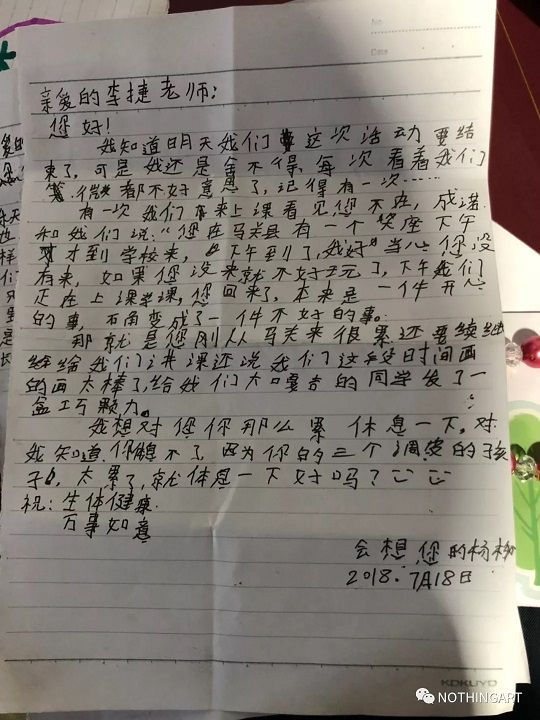 No
Date
亲爱的李捷老师:
您好!
我知道明天我们这次活动要结
束了,可是我还是舍不得,每次看着我们
笑微都不好意思了,记得有一次……
有一次我们来上课看见您不在,成诺
和我们说:“您在马关县有一个笑座下午
才到学校来,下午到了,我好”当心您没
有来,如果您没来就不好玩了,下午我们
正在上课,您回来了,本来是一件开心
的事,变成了一件不好的事。
那就是您刚从马关来很累还要续继
给我们讲课还说我们这段时间画
的画太棒了,给我们大口的同学发了一
盒巧颗力。
我想对您你那么累休息一下,对
我知道你想不了,因为你的三个调皮的孩
子,太累了,就体息一下好吗?
祝:生体健康
万事如意
会想您的杨
2018.7月18日
KOKUYO
NOTHINGART